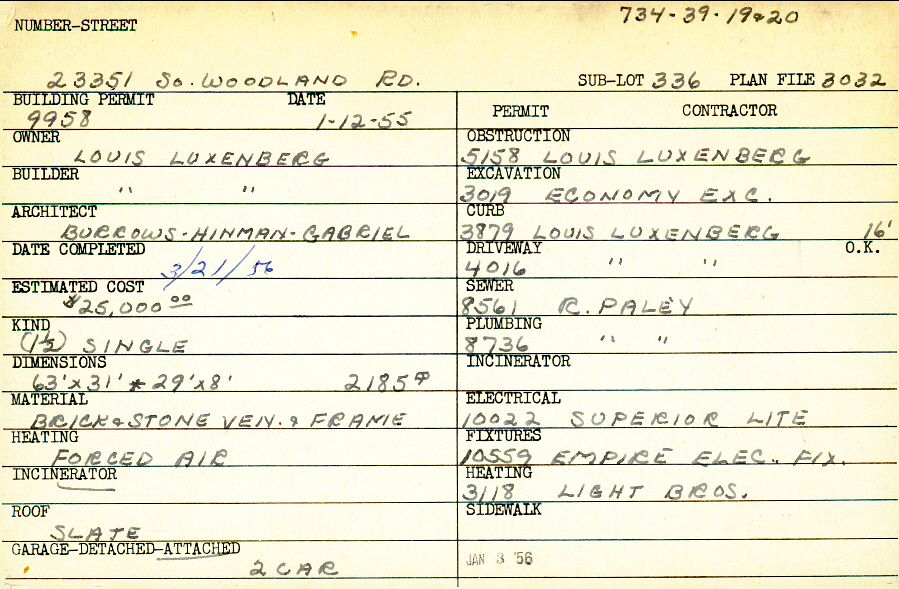 734-39-19&20
NUMBER-STREET
23351 SO. WOODLAND RD. SUB-LOT 336 PLAN FILE 3032
BUILDING PERMIT DATE
9958 1-12-55
OWNER
LOUIS LUXENBERG
BUILDER
" "
ARCHITECT
BURROWS-HINMAN-GABRIEL
DATE COMPLETED
3/21/56
ESTIMATED COST
$25,000.00
KIND
(1½) SINGLE
DIMENSIONS
63'x31' * 29'x8' 2185
MATERIAL
BRICK & STONE VEN. & FRAME
HEATING
FORCED AIR
INCINERATOR
ROOF
SLATE
GARAGE-DETACHED-ATTACHED
2 CAR
PERMIT CONTRACTOR
OBSTRUCTION
5158 LOUIS LUXENBERG
EXCAVATION
3019 ECONOMY EXC.
CURB
3879 LOUIS LUXENBERG 16'
DRIVEWAY O.K.
4016 " "
SEWER
8561 R. PALEY
PLUMBING
8736 " "
INCINERATOR
ELECTRICAL
10022 SUPERIOR LITE
FIXTURES
10559 EMPIRE ELEC. FIX.
HEATING
3118 LIGHT BROS.
SIDEWALK
JAN 3 '56